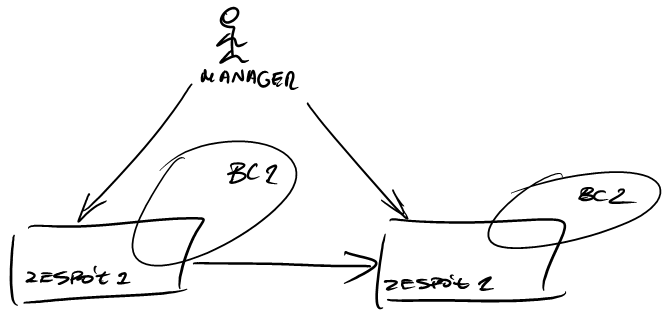 MANAGER
BC
BC2
ZESPÓŁ
ZESPÓŁ